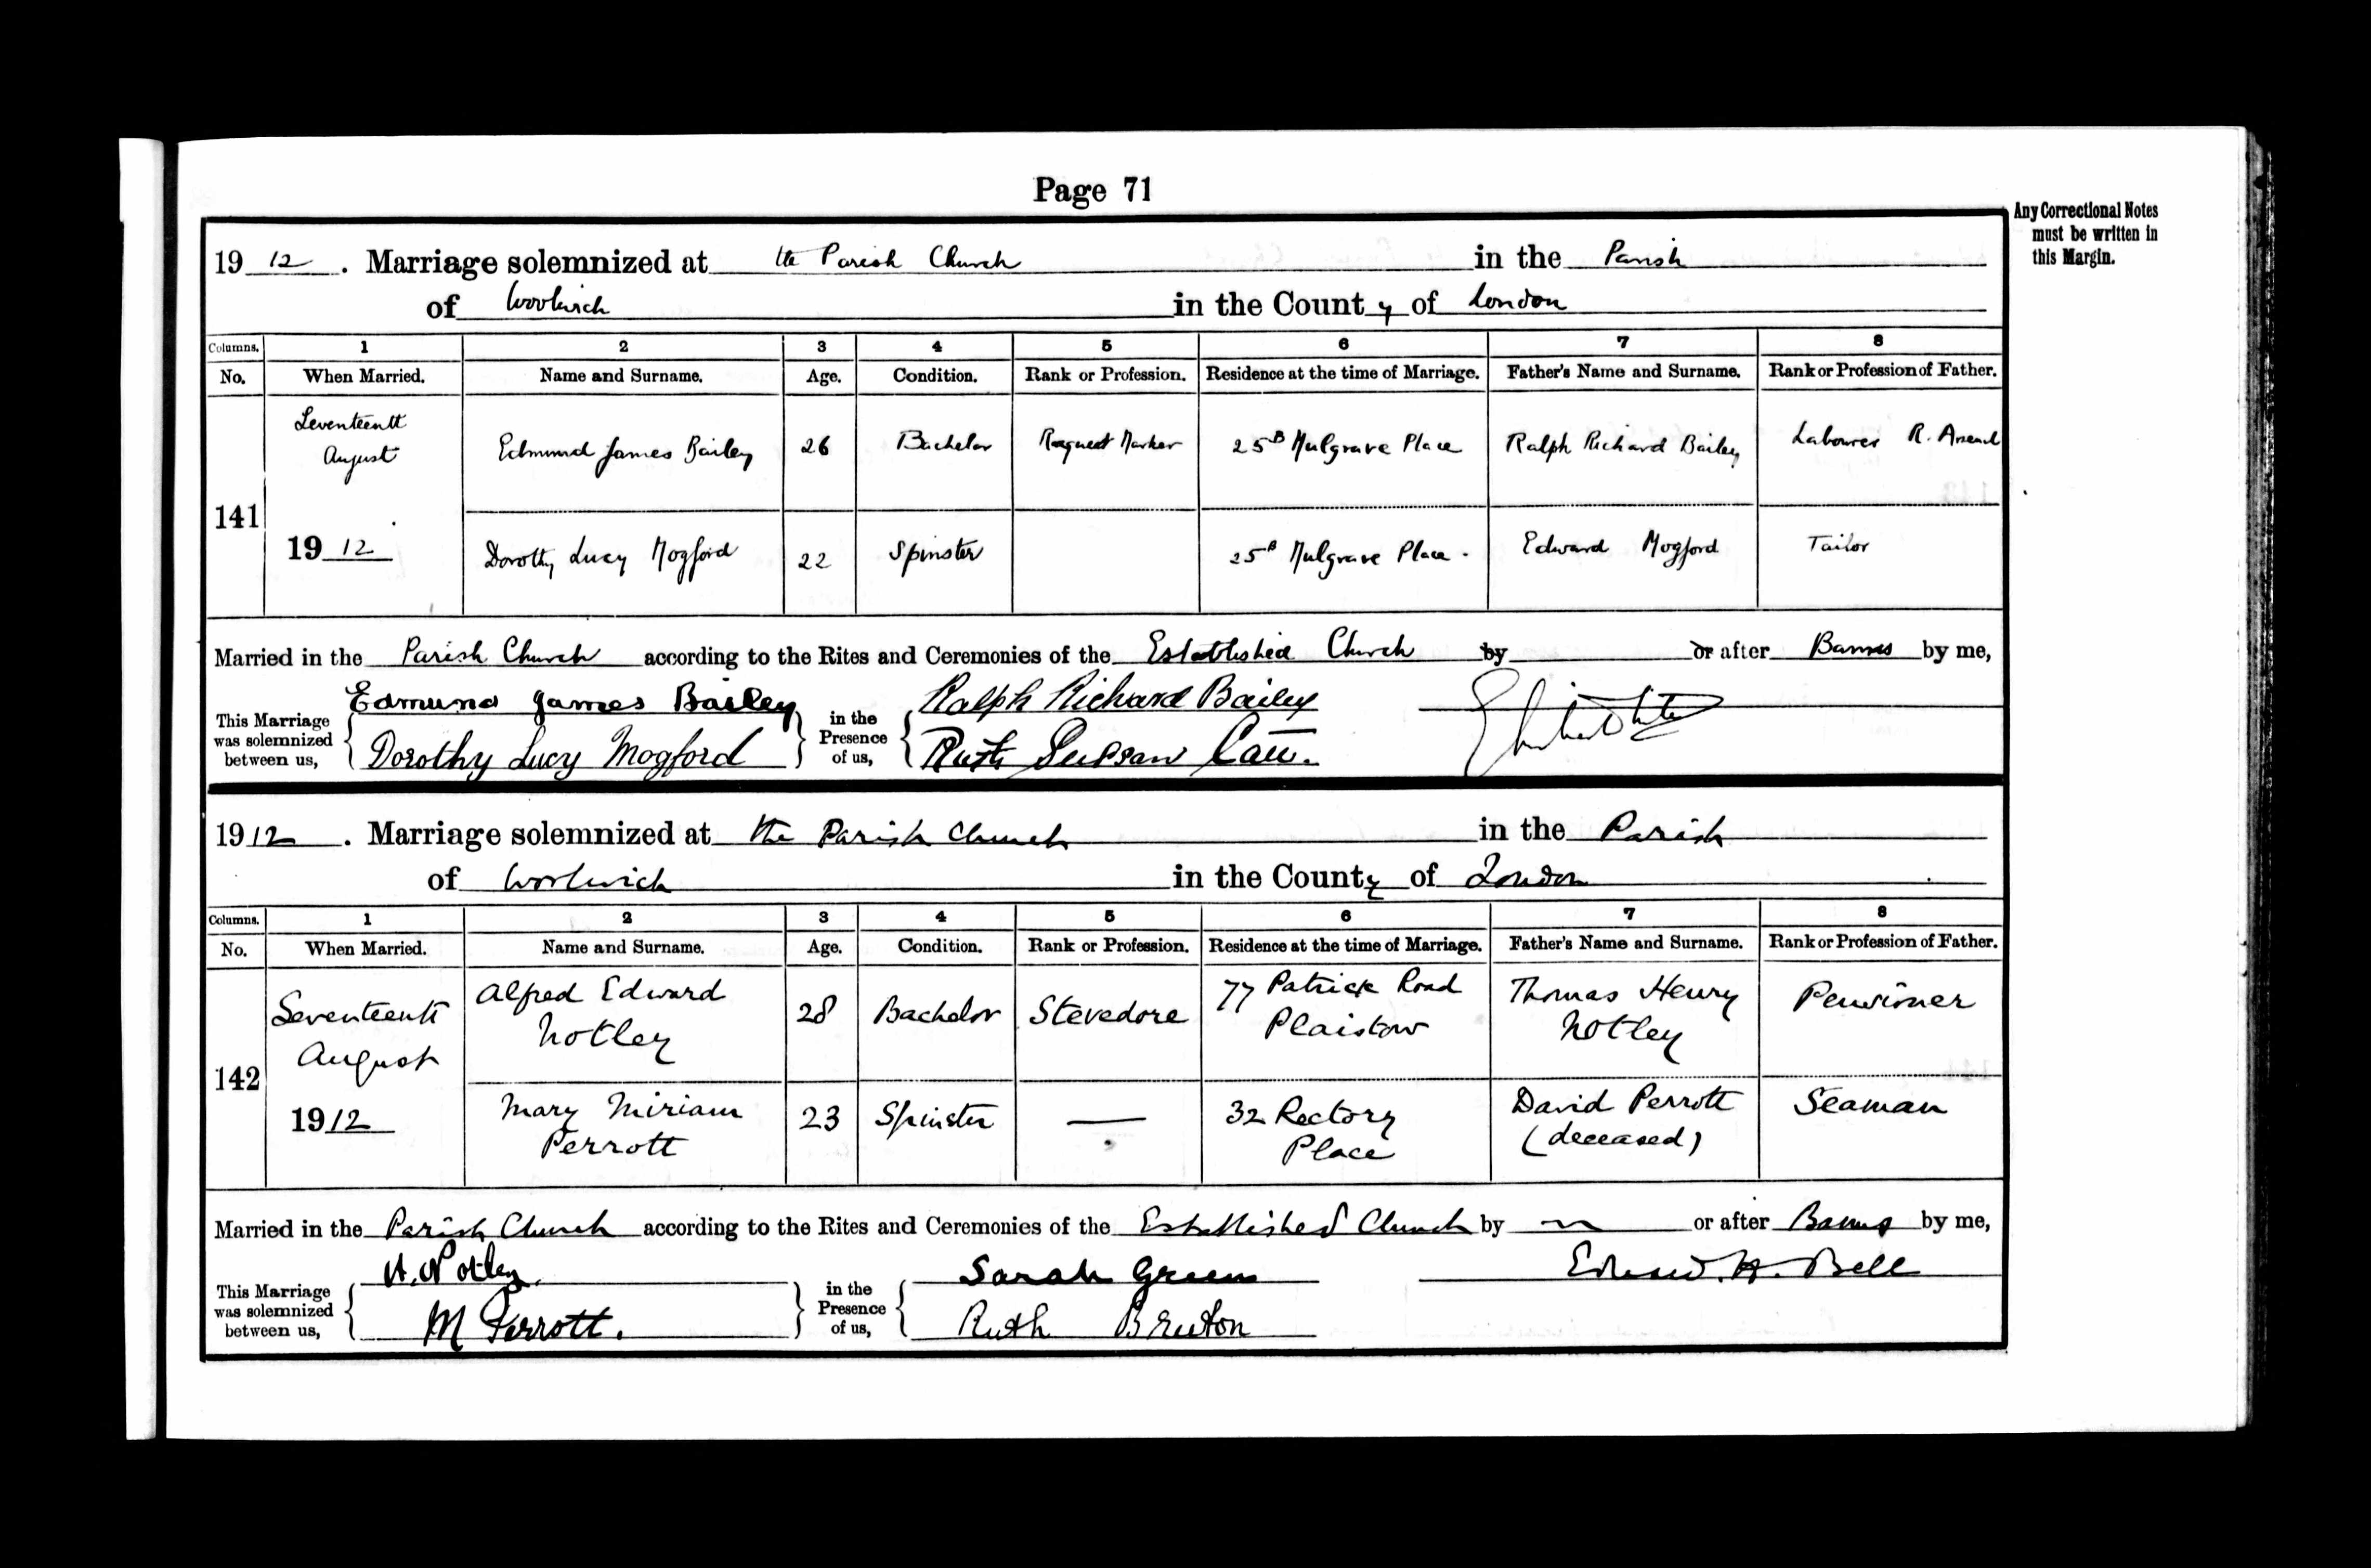 Page 71
Any Correctional Notes
must be written in
this Margin.
19 12 . Marriage solemnized at the Parish Church in the Parish
of Woolwich in the County of London
Columns. 1 2 3 4 5 6 7 8
No. When Married. Name and Surname. Age. Condition. Rank or Profession. Residence at the time of Marriage. Father's Name and Surname. Rank or Profession of Father.
141 Seventeenth August 1912 Edmund James Bailey 26 Bachelor Racquet Marker 25B Mulgrave Place Ralph Richard Bailey Labourer R. Arsenal
Dorothy Lucy Mogford 22 Spinster 25B Mulgrave Place. Edward Mogford Tailor
Married in the Parish Church according to the Rites and Ceremonies of the Established Church by or after Banns by me,
This Marriage was solemnized between us, Edmund James Bailey in the Presence of us, Ralph Richard Bailey
Dorothy Lucy Mogford Ruth
1912 . Marriage solemnized at the Parish Church in the Parish
of Woolwich in the County of London
Columns. 1 2 3 4 5 6 7 8
No. When Married. Name and Surname. Age. Condition. Rank or Profession. Residence at the time of Marriage. Father's Name and Surname. Rank or Profession of Father.
142 Seventeenth August 1912 Alfred Edward Notley 28 Bachelor Stevedore 77 Patrick Road Plaistow Thomas Henry Notley Pensioner
Mary Miriam Perrott 23 Spinster — 32 Rectory Place David Perrott (deceased) Seaman
Married in the Parish Church according to the Rites and Ceremonies of the Established Church by or after Banns by me,
This Marriage was solemnized between us, A. Notley in the Presence of us, Sarah Green Edward H. Bell
M Perrott. Ruth Bruton